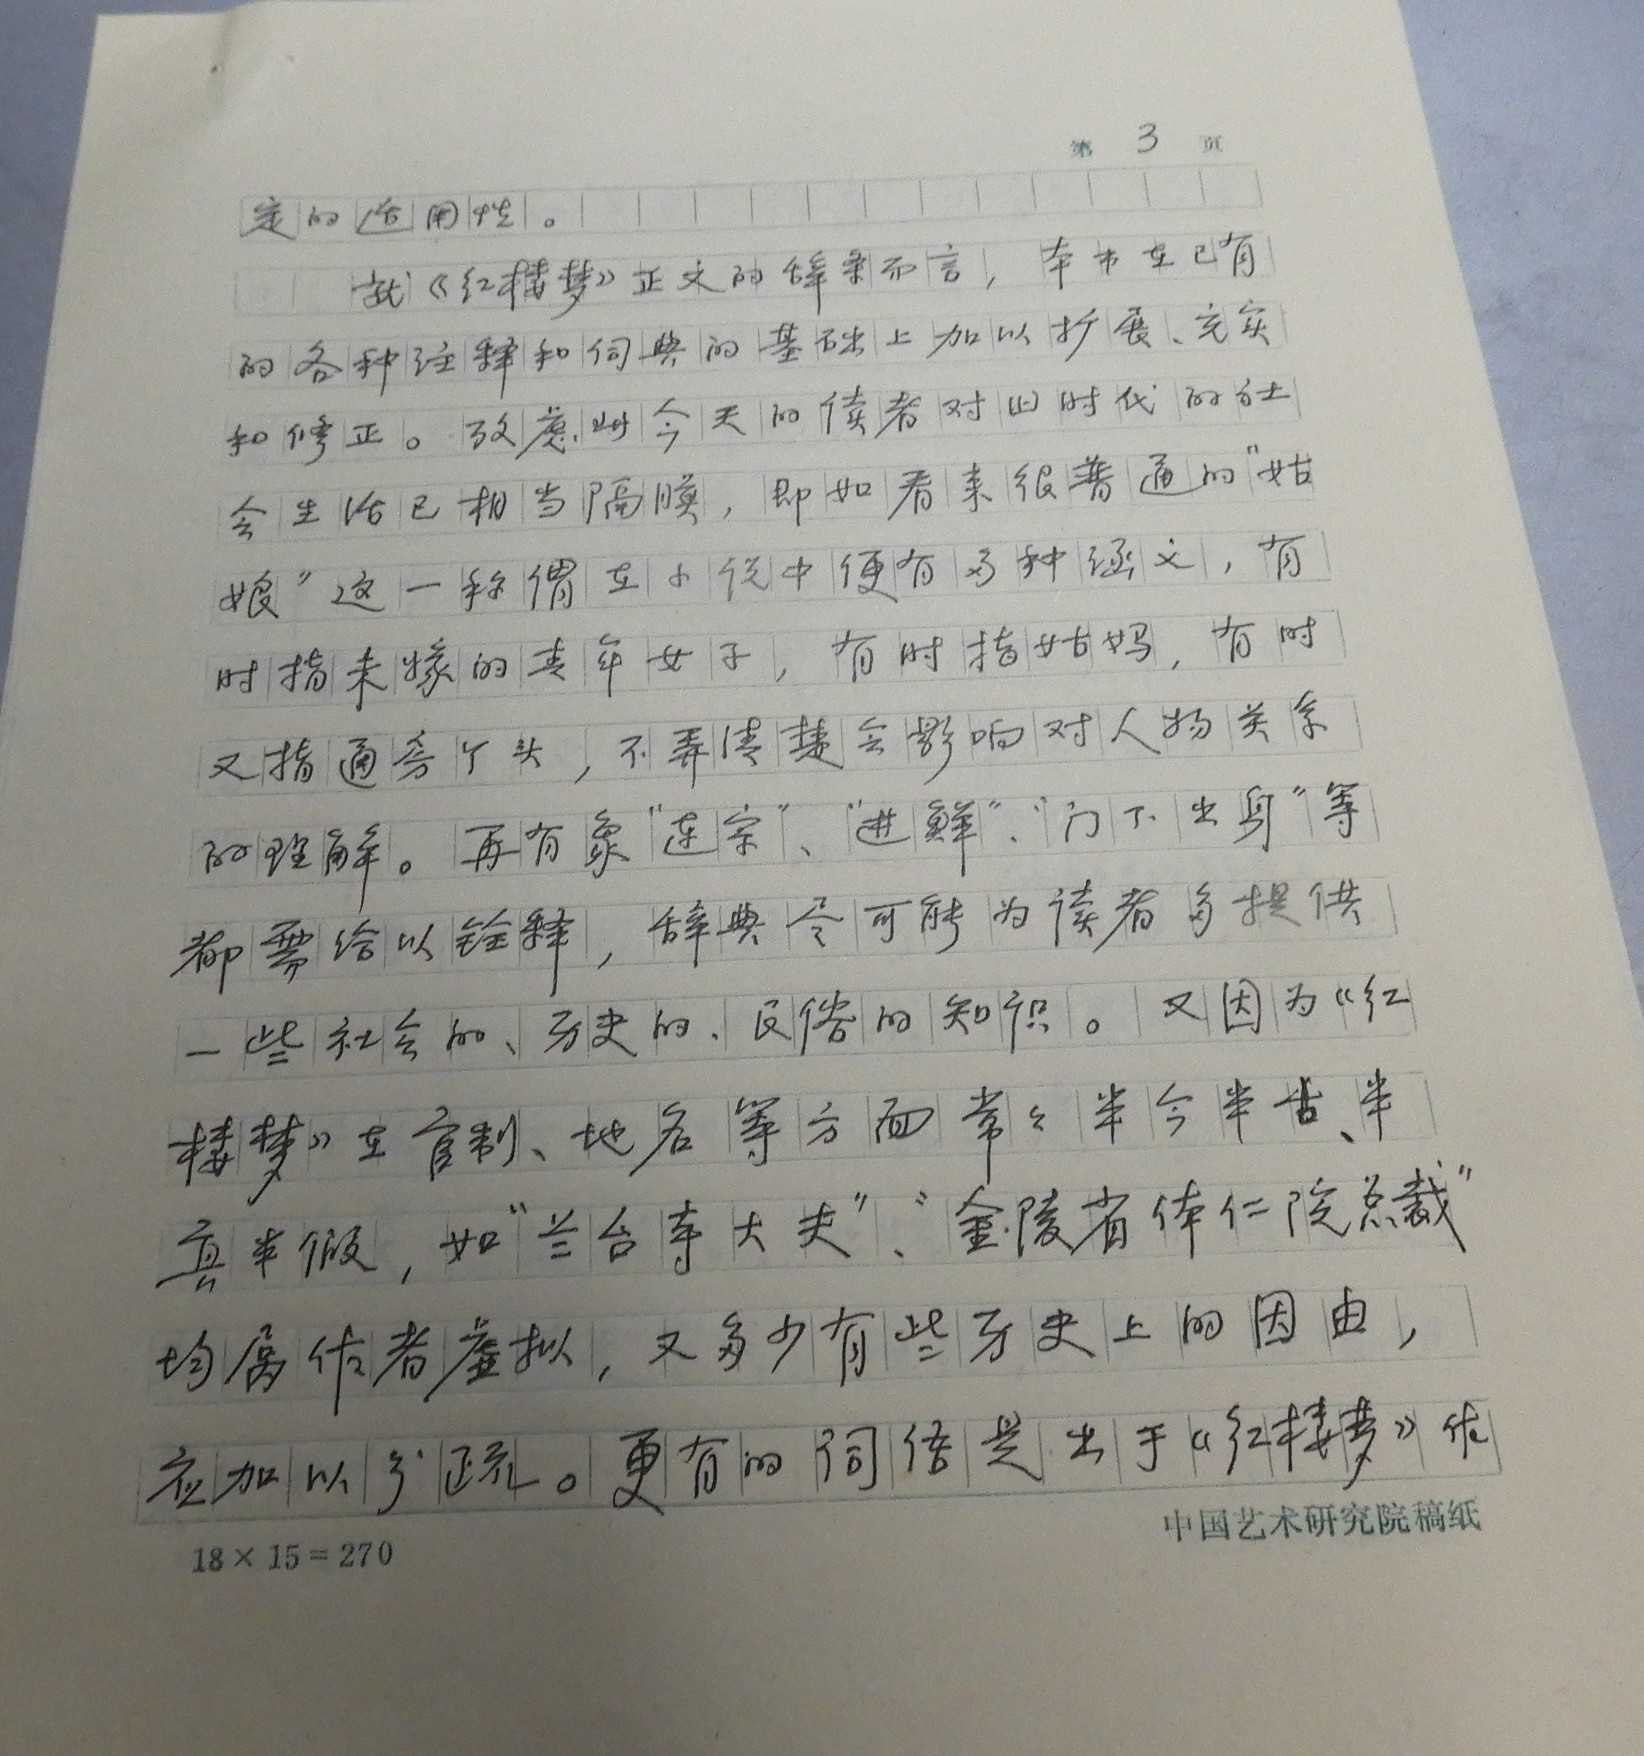 第 3 页
定的适用性。
就《红楼梦》正文的辞条而言，本书在已有
的各种注释和词典的基础上加以扩展、充实
和修正。考虑此今天的读者对旧时代的社
会生活已相当隔膜，即如看来很普通的“姑
娘”这一称谓在小说中便有多种涵义，有
时指未嫁的青年女子，有时指姑妈，有时
又指通房丫头，不弄清楚会影响对人物关系
的理解。再有象“连宗”、“进鲜”、“门下出身”等
都需给以诠释，辞典尽可能为读者多提供
一些社会的、历史的、民俗的知识。又因为《红
楼梦》在官制、地名等方面常々半今半古、半
真半假，如“兰台寺大夫”、“金陵省体仁院总裁”
均属作者虚拟，又多少有些历史上的因由，
应加以分疏。更有的词语是出于《红楼梦》作
18×15=270
中国艺术研究院稿纸